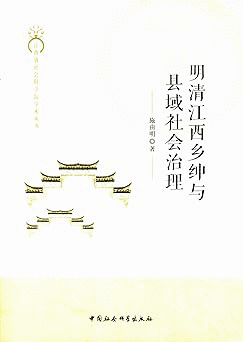 明清江西乡绅与
县域社会治理
施由明◎著
中国社会科学出版社